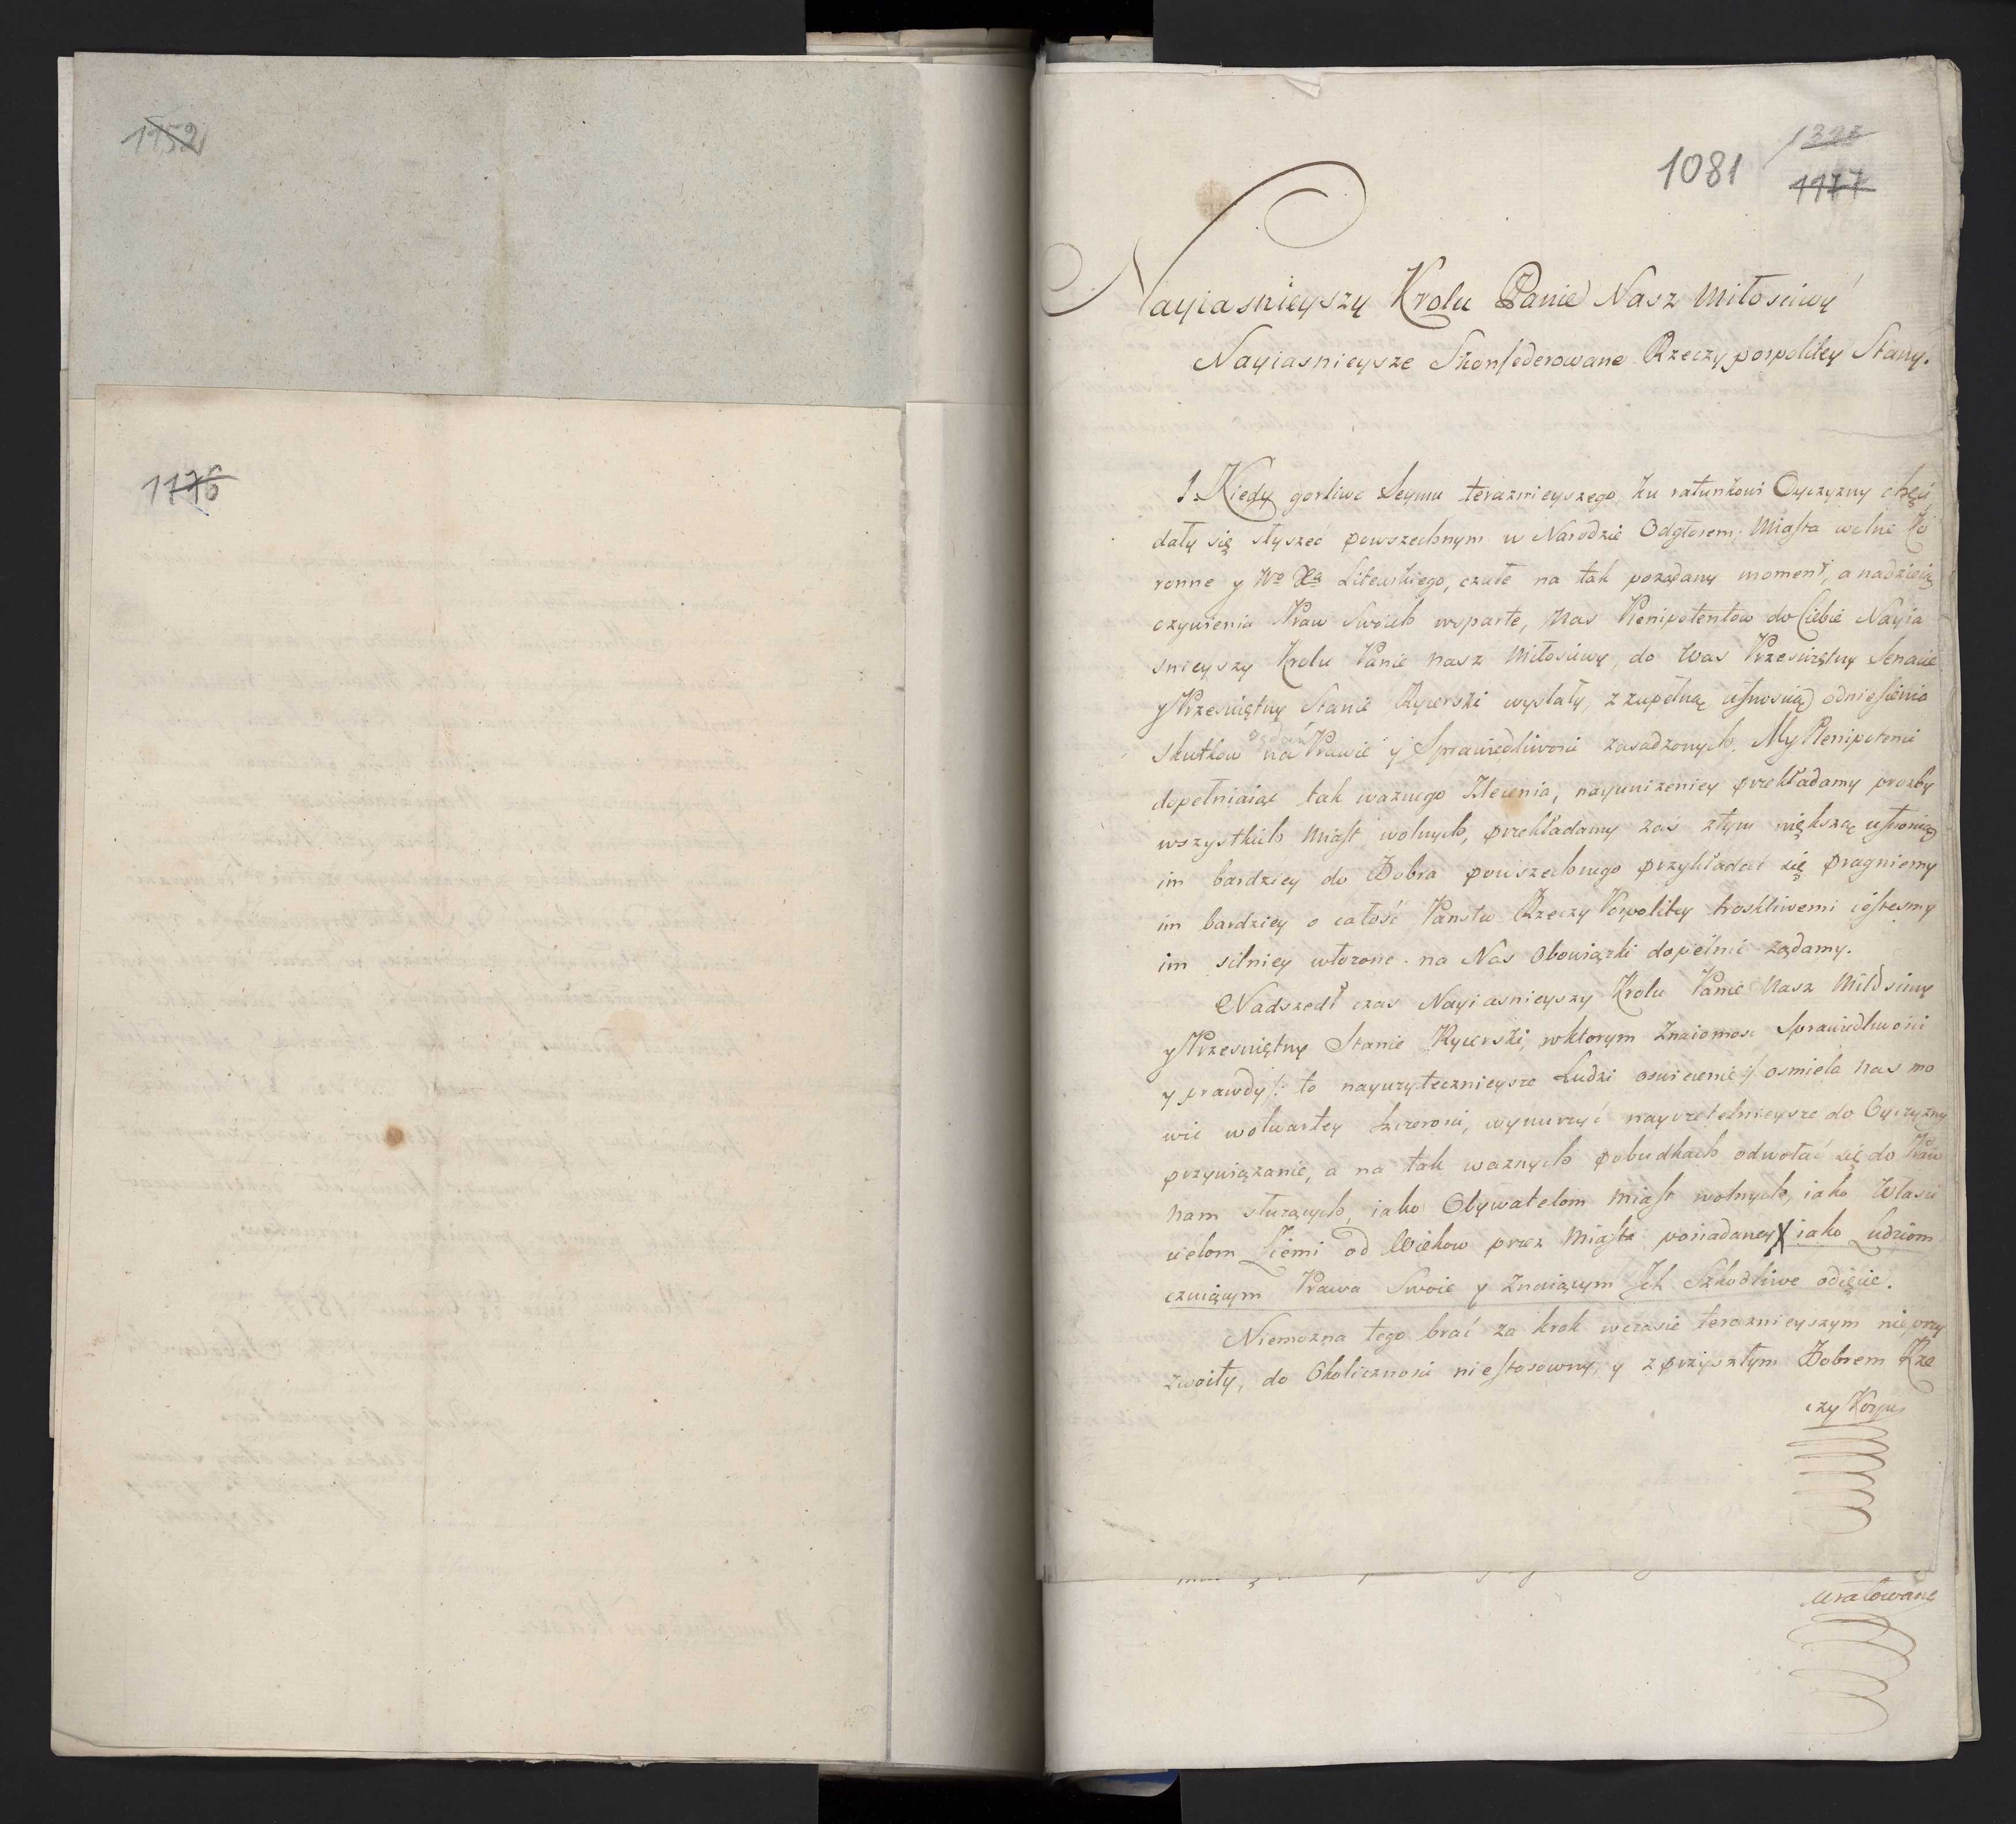 1152
1176
1081
1323
1177
Nayiasnieyszy Krolu Panie Nasz Miłosciwy
Nayiasnieysze Skonfederowane Rzeczypospolitey Stany.
1. Kiedy gorliwe Seymu terazrnieyszego, ku ratunkowi Oyczyzny chęci
dały się słyszeć powszechnym w Narodzie Odgłosem; Miasta wolne Ko
ronne y Wo Xa Litewskiego, czułe na tak pożądany moment, a nadzieią
ożywienia Praw Swoich wsparte, Nas Plenipotentow do Ciebie Nayia
snieyszy Krolu Panie Nasz Miłosciwy, do Was Przeswiętny Senacie
y Przeswiętny Stanie Rycerski wysłały, z zupełną ufnoscią odniesienia
skutkow żądań na Prawie y Sprawiedliwosci zasadzonych. My Plenipotenci
dopełniaiąc tak ważnego Zlecenia, nayunizeniey przekładamy prozby
wszystkich Miast wolnych, przekładamy zaś z tym większą ufnoscią
im bardziey do Dobra powszechnego przykładać się pragniemy
im bardziey o całość Panstw Rzeczy Pospolitey troskliwemi iestesmy
im silniey włożone na Nas Obowiązki dopełnić żądamy.
Nadszedł czas Nayiasnieyszy Krolu Panie Nasz Miłosciwy
y Przeswiętny Stanie Rycerski, w ktorym Znaiomosc Sprawiedliwosci
y prawdy /: to nayużytecznieysze Ludzi oswiecenie :/ osmiela nas mo
wic w otwartey szczerosci, wynurzyć nayrzetelnieysze do Oyczyzny
przywiązanie, a na tak ważnych pobudkach odwołać się do Praw
nam służących, iako Obywatelom Miast wolnych, iako Własci
cielom Ziemi od Wiekow przez Miasta posiadaney X iako Ludziom
czuiącym Prawa Swoie y Znaiącym Jch Szkodliwe odięcie.
Niemożna tego brać za krok w czasie terazrnieyszym nieprzy
zwoity, do Okolicznosci niestosowny, y z przyszłym Dobrem Rze
czy Pospo
uratowane